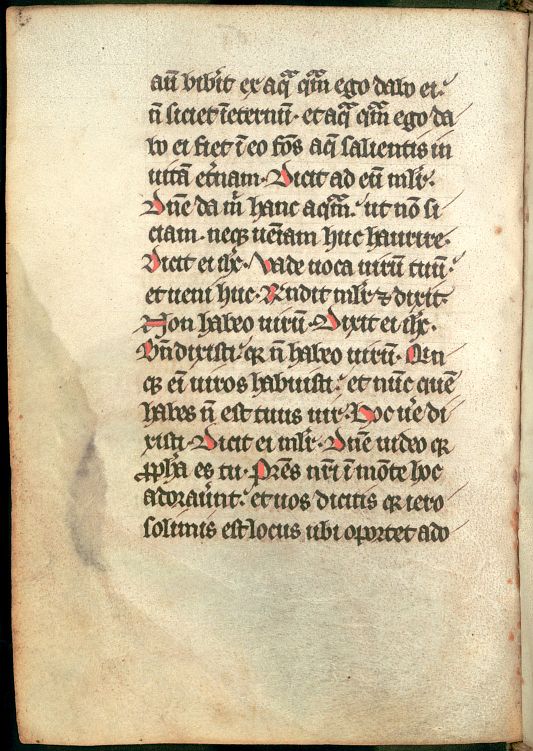 aū bib̾it ex aq̄ qm̄ ego dabo ei.
n̄ siciet īeternū. et aq̄ qm̄ ego da
bo ei fiet ī eo fōs aq̄ salientis in
uitā et̾nam. Dicit ad eū ml̾r.
Dn̄e da m̄ hanc aq̄m. ut nō si
ciam. neq̨ ueīam huc haurire.
Dicit ei ih̄c. Vade uoca uirū tuū.
et ueni huc. Rn̄dit ml̾r ⁊ dixit.
Non habeo uirū. Dixit ei ih̄c.
Bn̄ dixisti. q̨ n̄ habeo uirū. Qn
q̨ eī uiros habuisti. et nūc quē
habes n̄ est tuus uir. Hoc ue̾ di
xisti. Dicit ei ml̾r. Dn̄e uideo q̨
ꝓph̄a es tu. Pr̄es nr̄i ī mōte hoc
adorauer̄nt. et uos dicitis q̨ iero
solimis est locus ubi oportet ado